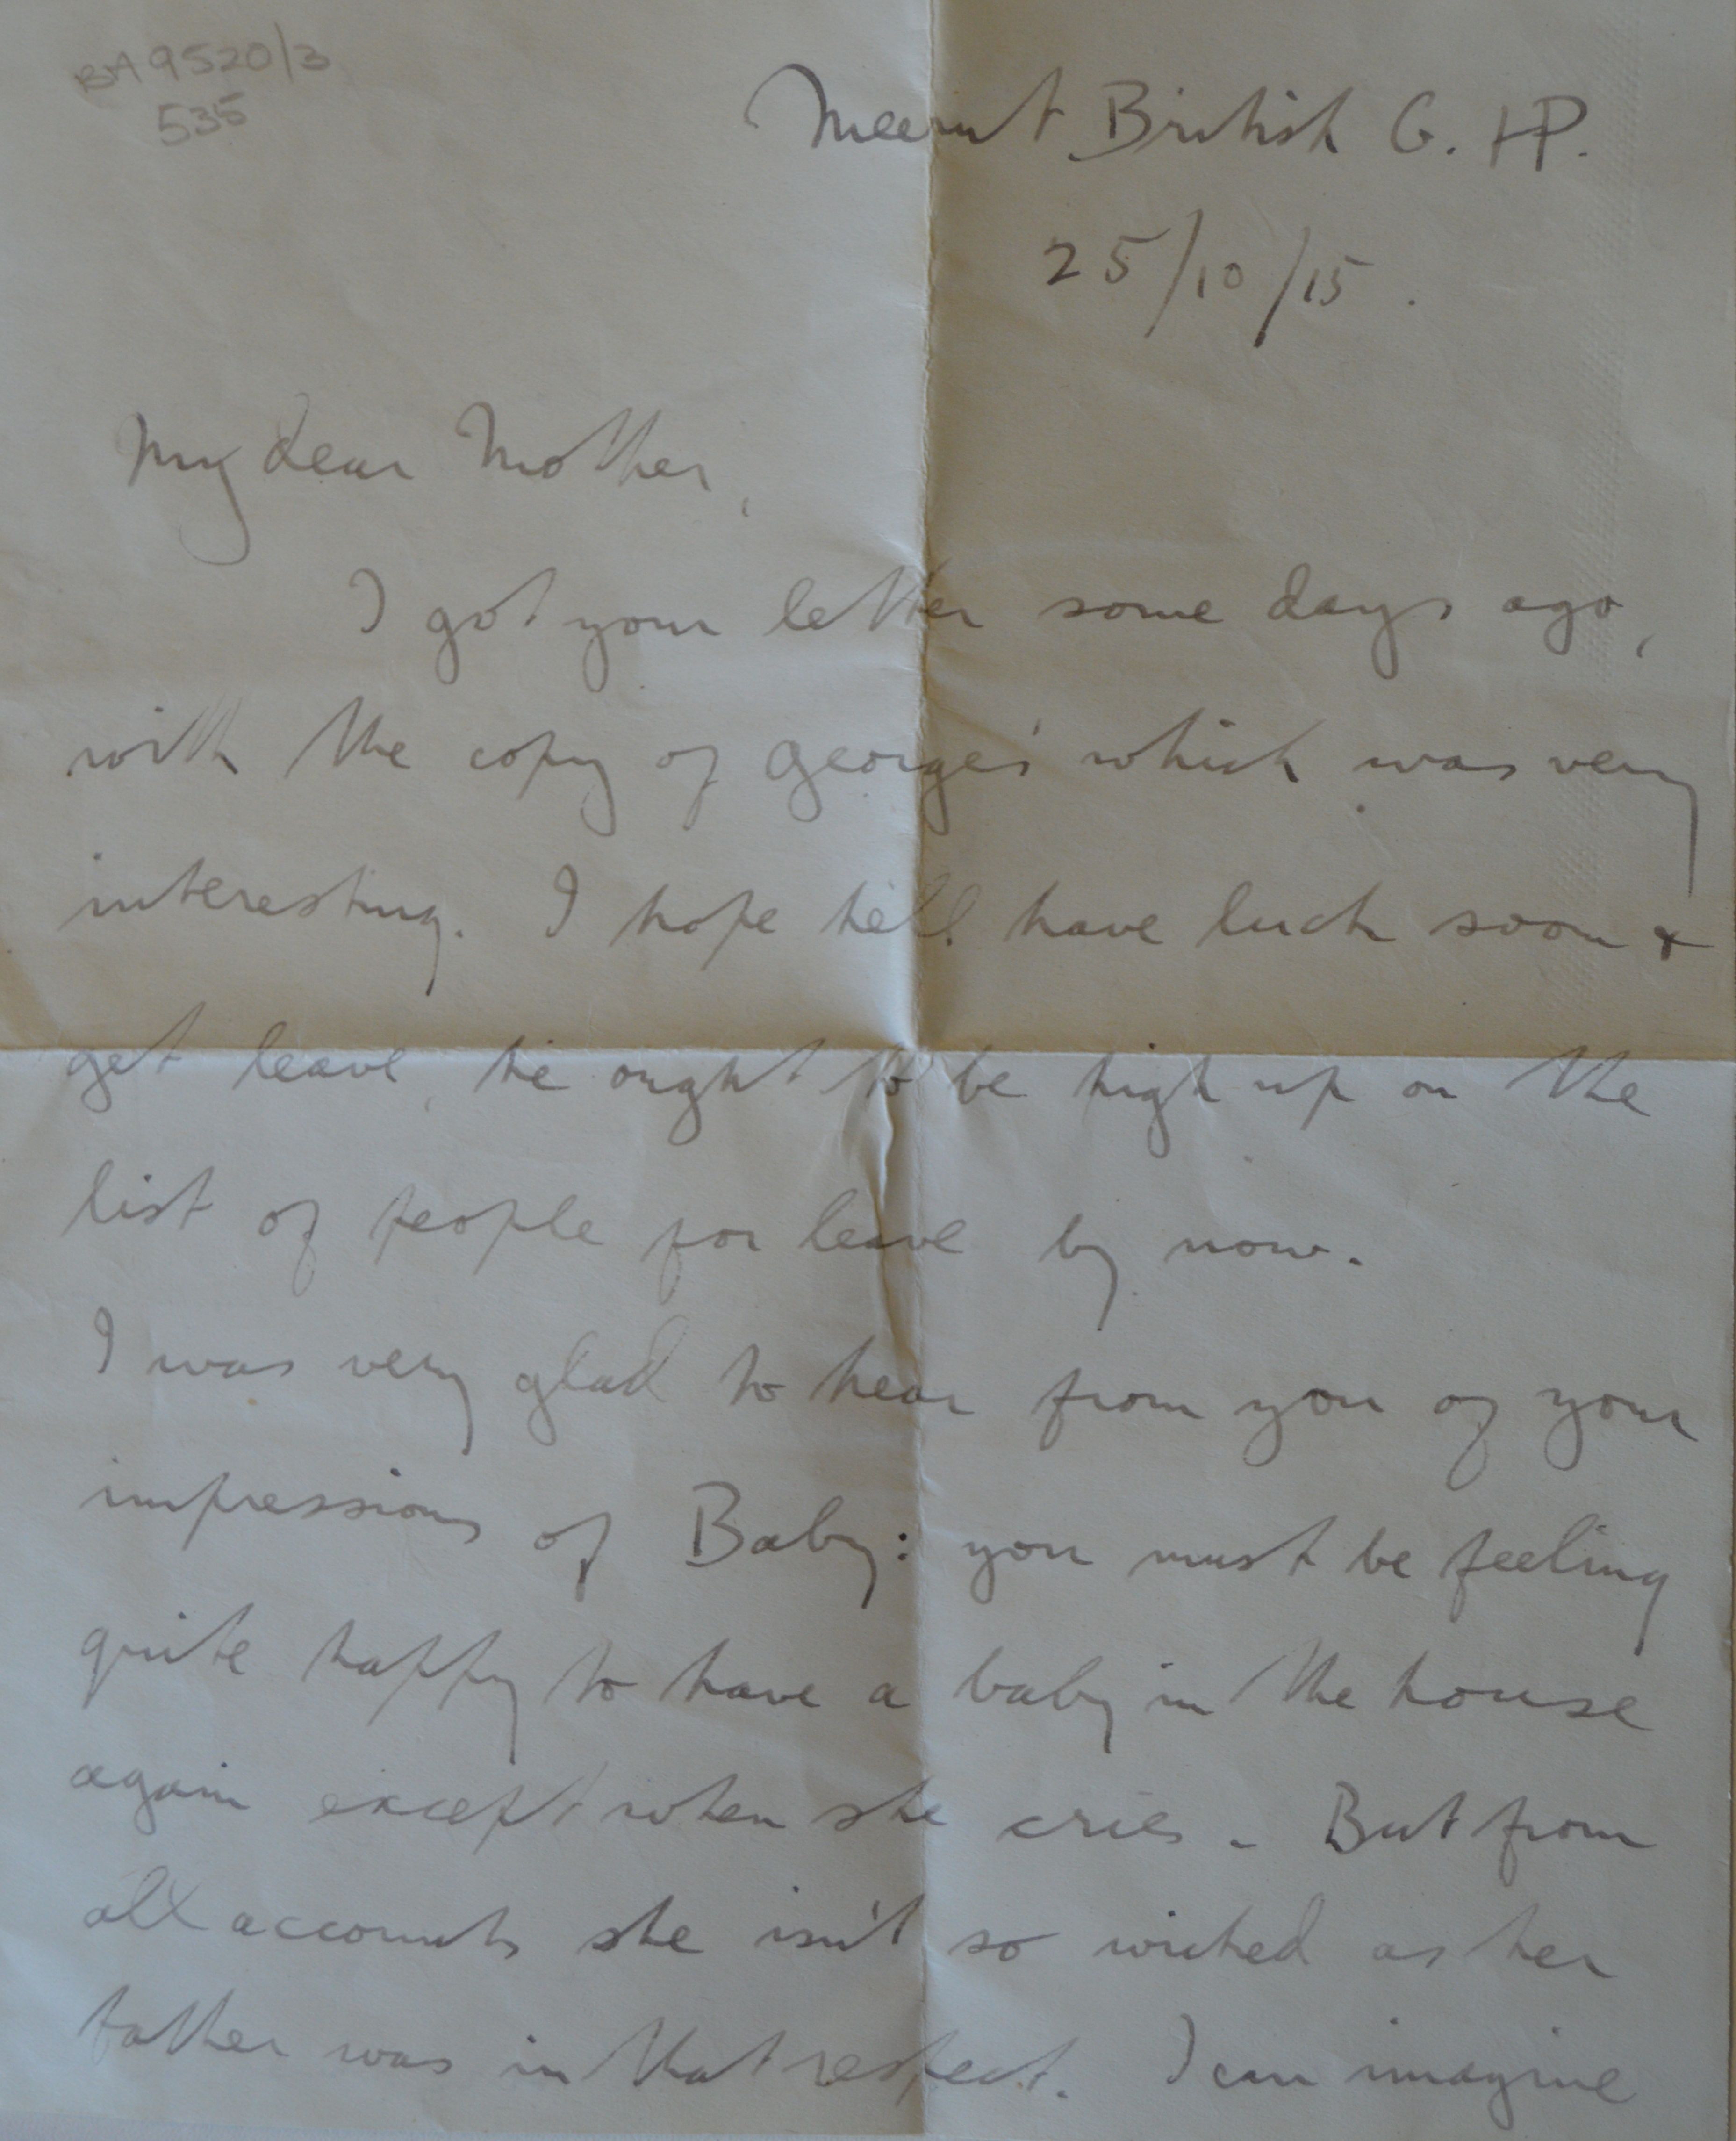 BA9520/3
535
Meerut British G. HP.
25/10/15.
My dear Mother,
I got your letter some days ago,
with the copy of George's which was very
interesting. I hope he'll have luck soon &
get leave, he ought to be high up on the
list of people for leave by now.
I was very glad to hear from you of your
impressions of Baby: you must be feeling
quite happy to have a baby in the house
again except when she cries. But from
all accounts she isn't so wicked as her
father was in that respect. I can imagine